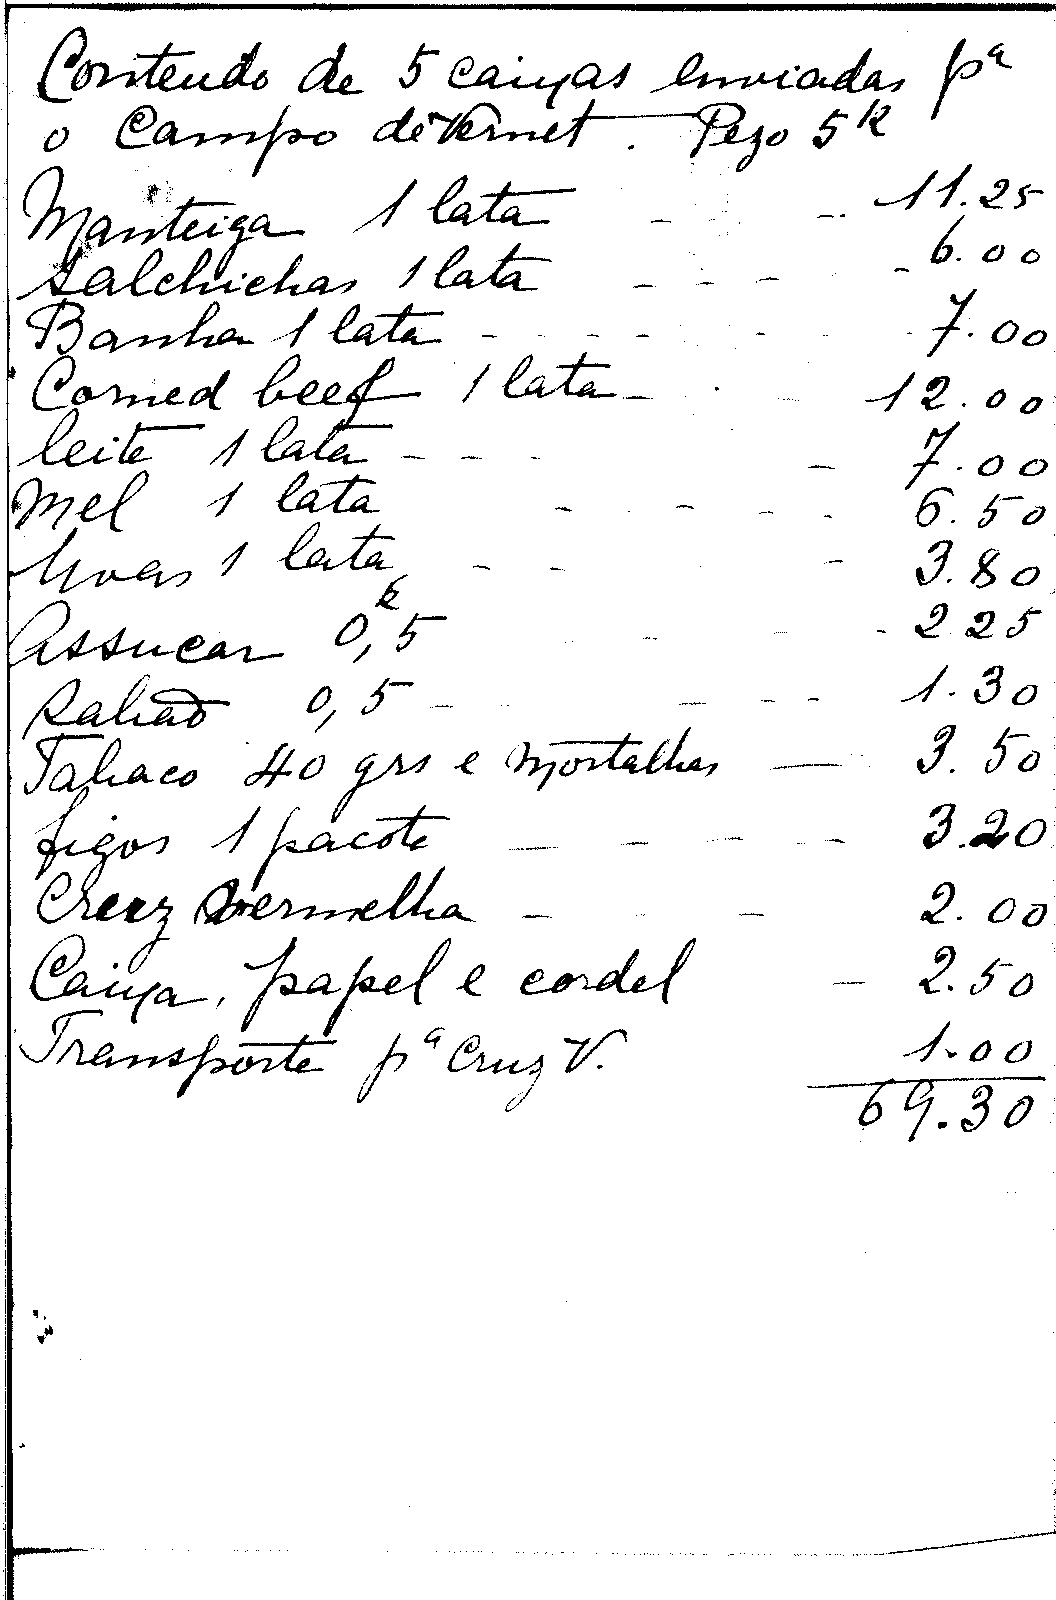 Conteudo de 5 caixas enviadas pª
o Campo de Vernet. Pezo 5k
Manteiga 1 lata - - - 11.25
Salchichas 1 lata - - - - 6.00
Banha 1 lata - - - - - - 7.00
Corned beef 1 lata - - - 12.00
leite 1 lata - - - - 7.00
Mel 1 lata - - - - - 6.50
Uvas 1 lata - - - - 3.80
Assucar 0,5k - - - 2 25
Sabão 0,5 - - - - - 1.30
Tabaco 40 grs e mortalhas - 3.50
figos 1 pacote - - - - - 3.20
Cruz Vermelha - - - 2.00
Caixa, papel e cordel - 2.50
Transporte pª Cruz V. 1.00
69.30